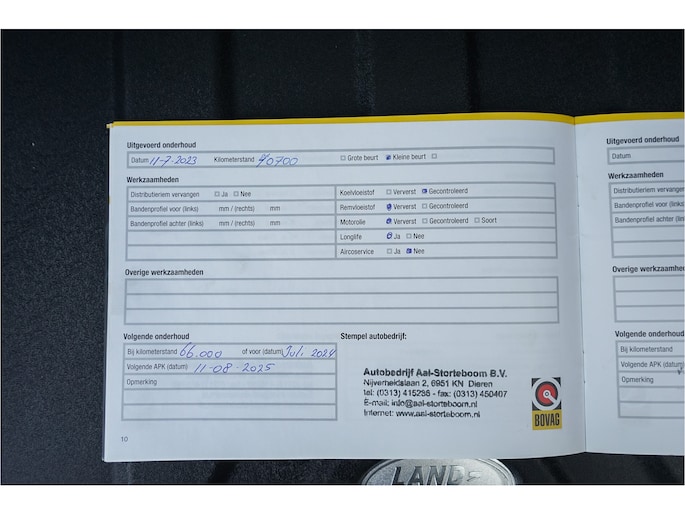 Uitgevoerd onderhoud
Datum 11-7-2023 Kilometerstand 40700 Grote beurt Kleine beurt
Werkzaamheden
Distributieriem vervangen Ja Nee
Bandenprofiel voor (links) mm / (rechts) mm
Bandenprofiel achter (links) mm / (rechts) mm
Koelvloeistof Ververst Gecontroleerd
Remvloeistof Ververst Gecontroleerd
Motorolie Ververst Gecontroleerd Soort
Longlife Ja Nee
Aircoservice Ja Nee
Overige werkzaamheden
Volgende onderhoud
Bij kilometerstand 66.000 of voor (datum) Juli 2024
Volgende APK (datum) 11-08-2025
Opmerking
Stempel autobedrijf:
Autobedrijf Aal-Storteboom B.V.
Nijverheidslaan 2, 6951 KN Dieren
tel: (0313) 415298 - fax: (0313) 450407
E-mail: info@aal-storteboom.nl
Internet: www.aal-storteboom.nl
BOVAG
10
Uitgevoerd onderhoud
Datum
Werkzaamheden
Distributieriem vervangen
Bandenprofiel voor (links)
Bandenprofiel achter (links)
Overige werkzaamhe
Volgende onderhoud
Bij kilometerstand
Volgende APK (datum)
Opmerking
LAND